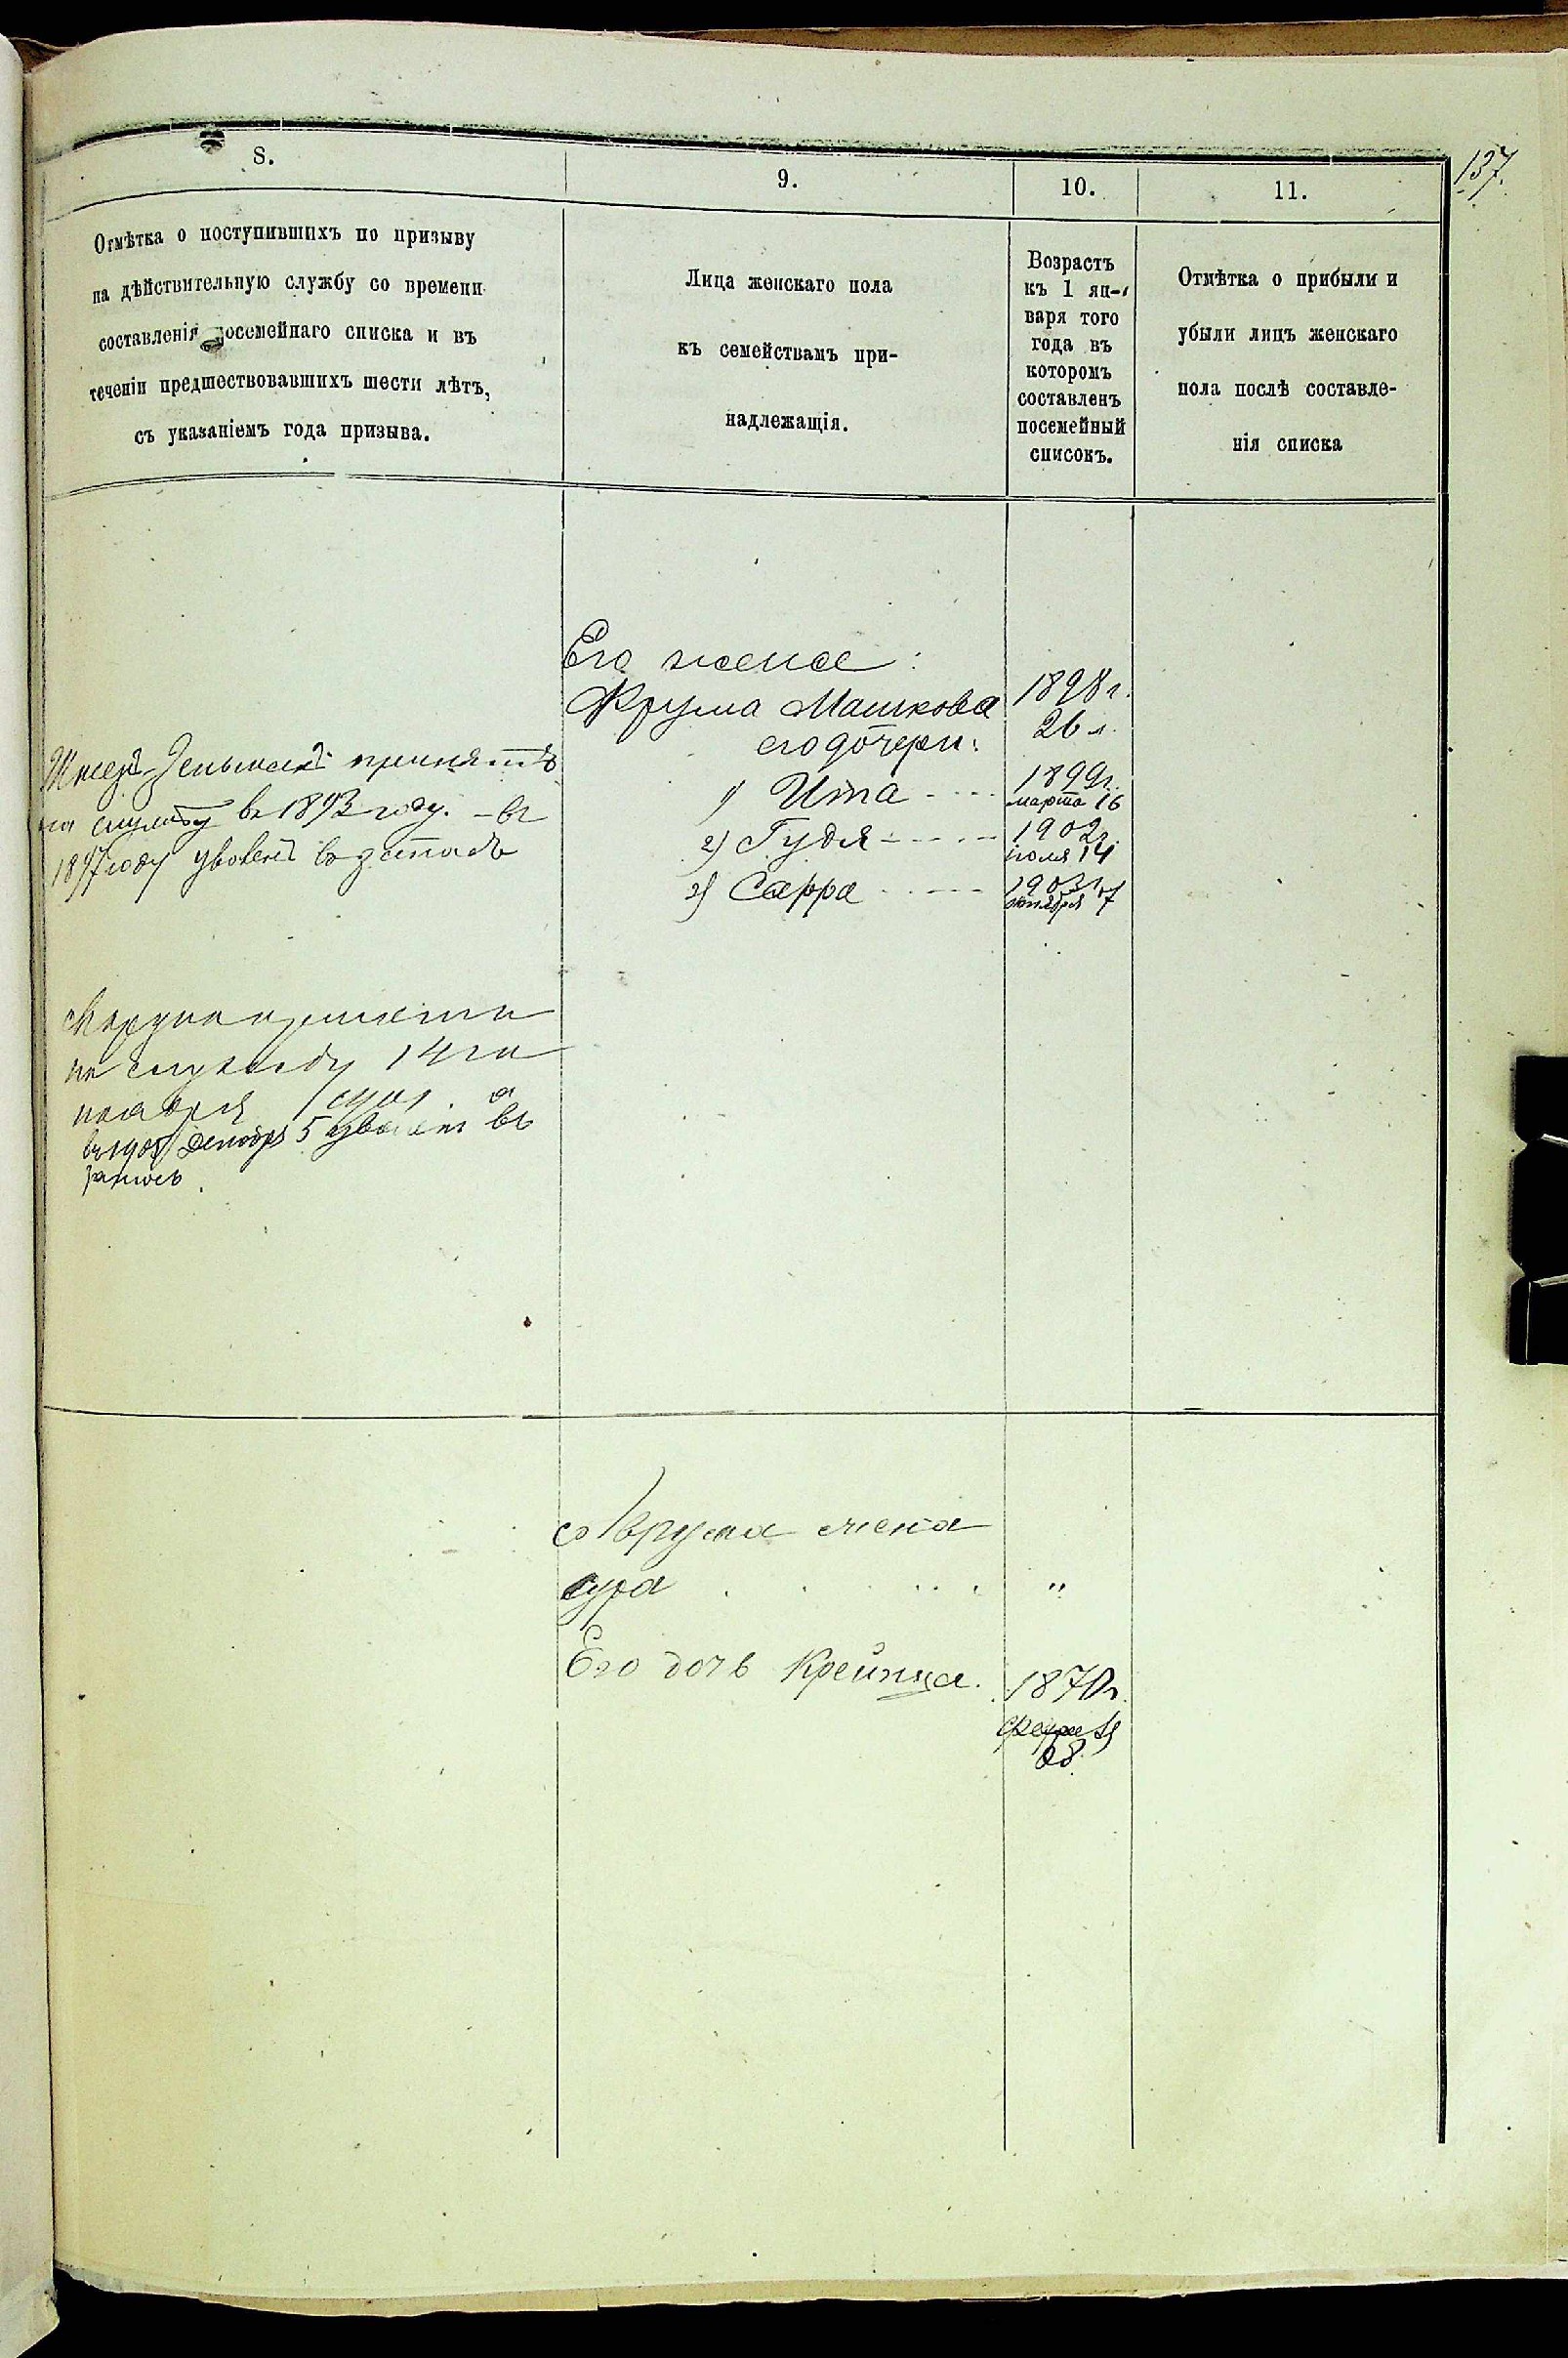 137.
8.
9.
10.
11.
Отмѣтка о поступившихъ по призыву
на дѣйствительную службу со времени
составленія посемейнаго списка и въ
теченіи предшествовавшихъ шести лѣтъ,
съ указаніемъ года призыва.
Лица женскаго пола
къ семействамъ при-
надлежащія.
Возрастъ
къ 1 ян-
варя того
года въ
которомъ
составленъ
посемейный
списокъ.
Отмѣтка о прибыли и
убыли лицъ женскаго
пола послѣ составле-
нія списка
принятъ
на службу въ 1893 году. – въ
году уволенъ въ запасъ
на службу 14 го
ноября
въ 1905 декабря 5 уволенъ въ
запасъ.
Его жена:
Фрума Машкова
его дочери:
1) Ита
2) Гудя
3) Сарра
1898 г.
26 л.
1899 г.
марта 16
1902 г.
іюля 14
1903 г.
октября 7
жена
сура . . . . . "
Его дочь Крейнца.
1870 г.
28.